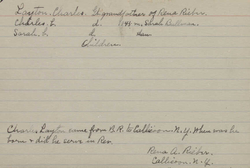 Layton, Charles, Gt grandfather of Rena Rieber.
Charles, L. d. 1848 m. Sarah
Sarah, L. L.
Children
Charles Layton came from B.R. to Callicoon, N.Y. When was he
born & did he serve in Rev.
Rena A. Rieber.
Callicoon, N.Y.